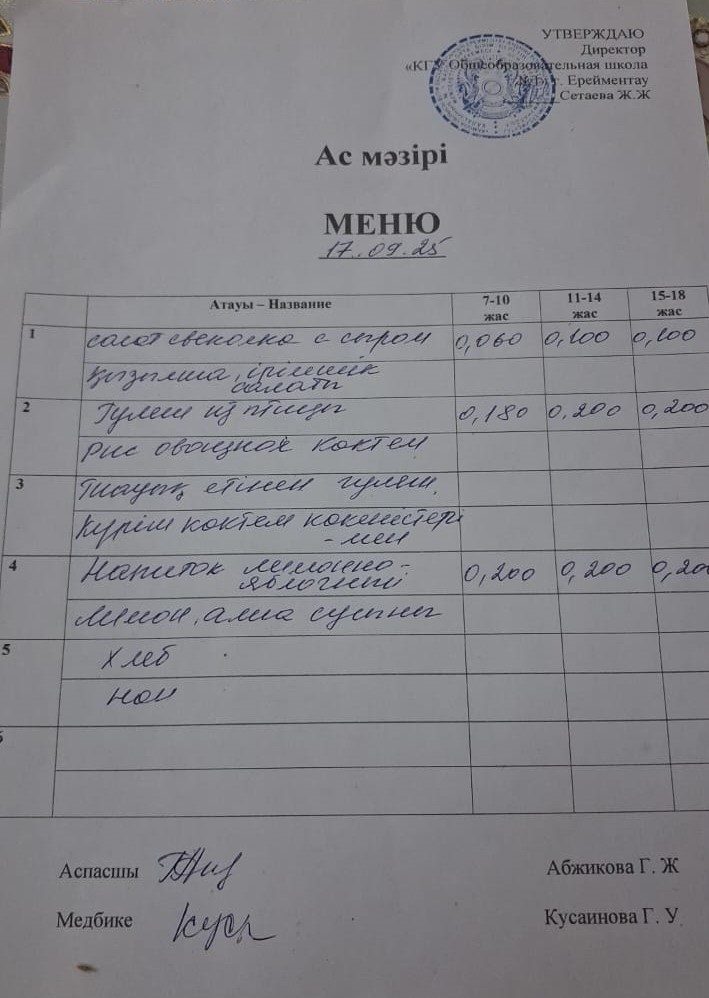 УТВЕРЖДАЮ
Директор
«КГУ Общеобразовательная школа
№1» г. Ерейментау
Сетаева Ж.Ж
Ас мәзірі
МЕНЮ
17.09.25
Атауы – Название 7-10 жас 11-14 жас 15-18 жас
1 салат свеколка с сыром 0,060 0,100 0,100
Қызылша, ірімшік
салаты
2 Гуляш из птицы 0,180 0,200 0,200
Рис овощной коктем
3 Тауық етінен гуляш
Күріш коктем көкөністері
-мен
4 Напиток лимонно-
яблочный 0,200 0,200 0,200
Лимон, алма сусыны
5 Хлеб
Нан
Аспасшы Абжикова Г. Ж
Медбике Кусаинова Г. У